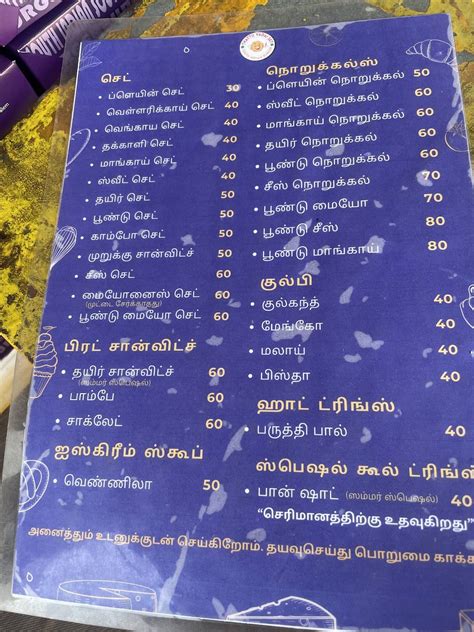 செட்
ப்ளெயின் செட் 30
வெள்ளரிக்காய் செட் 40
வெங்காய செட் 40
தக்காளி செட் 40
மாங்காய் செட் 40
ஸ்வீட் செட் 40
தயிர் செட் 50
பூண்டு செட் 50
காம்போ செட் 50
முறுக்கு சான்விட்ச் 50
சீஸ் செட் 60
மையோனைஸ் செட் 60
(முட்டை சேர்க்காதது)
பூண்டு மையோ செட் 60
பிரட் சான்விட்ச்
தயிர் சான்விட்ச் 60
(ஸம்மர் ஸ்பெஷல்)
பாம்பே 60
சாக்லேட் 60
ஐஸ்கிரீம் ஸ்கூப்
வெண்ணிலா 50
நொறுக்கல்ஸ்
ப்ளெயின் நொறுக்கல் 50
ஸ்வீட் நொறுக்கல் 60
மாங்காய் நொறுக்கல் 60
தயிர் நொறுக்கல் 60
பூண்டு நொறுக்கல் 60
சீஸ் நொறுக்கல் 70
பூண்டு மையோ 70
பூண்டு சீஸ் 80
பூண்டு மாங்காய் 80
குல்பி
குல்கந்த் 40
மேங்கோ 40
மலாய் 40
பிஸ்தா 40
ஹாட் ட்ரிங்ஸ்
பருத்தி பால் 40
ஸ்பெஷல் கூல் ட்ரிங்
பான் ஷாட் (ஸம்மர் ஸ்பெஷல்) 40
“செரிமானத்திற்கு உதவுகிறது”
அனைத்தும் உடனுக்குடன் செய்கிறோம். தயவுசெய்து பொறுமை காக்க